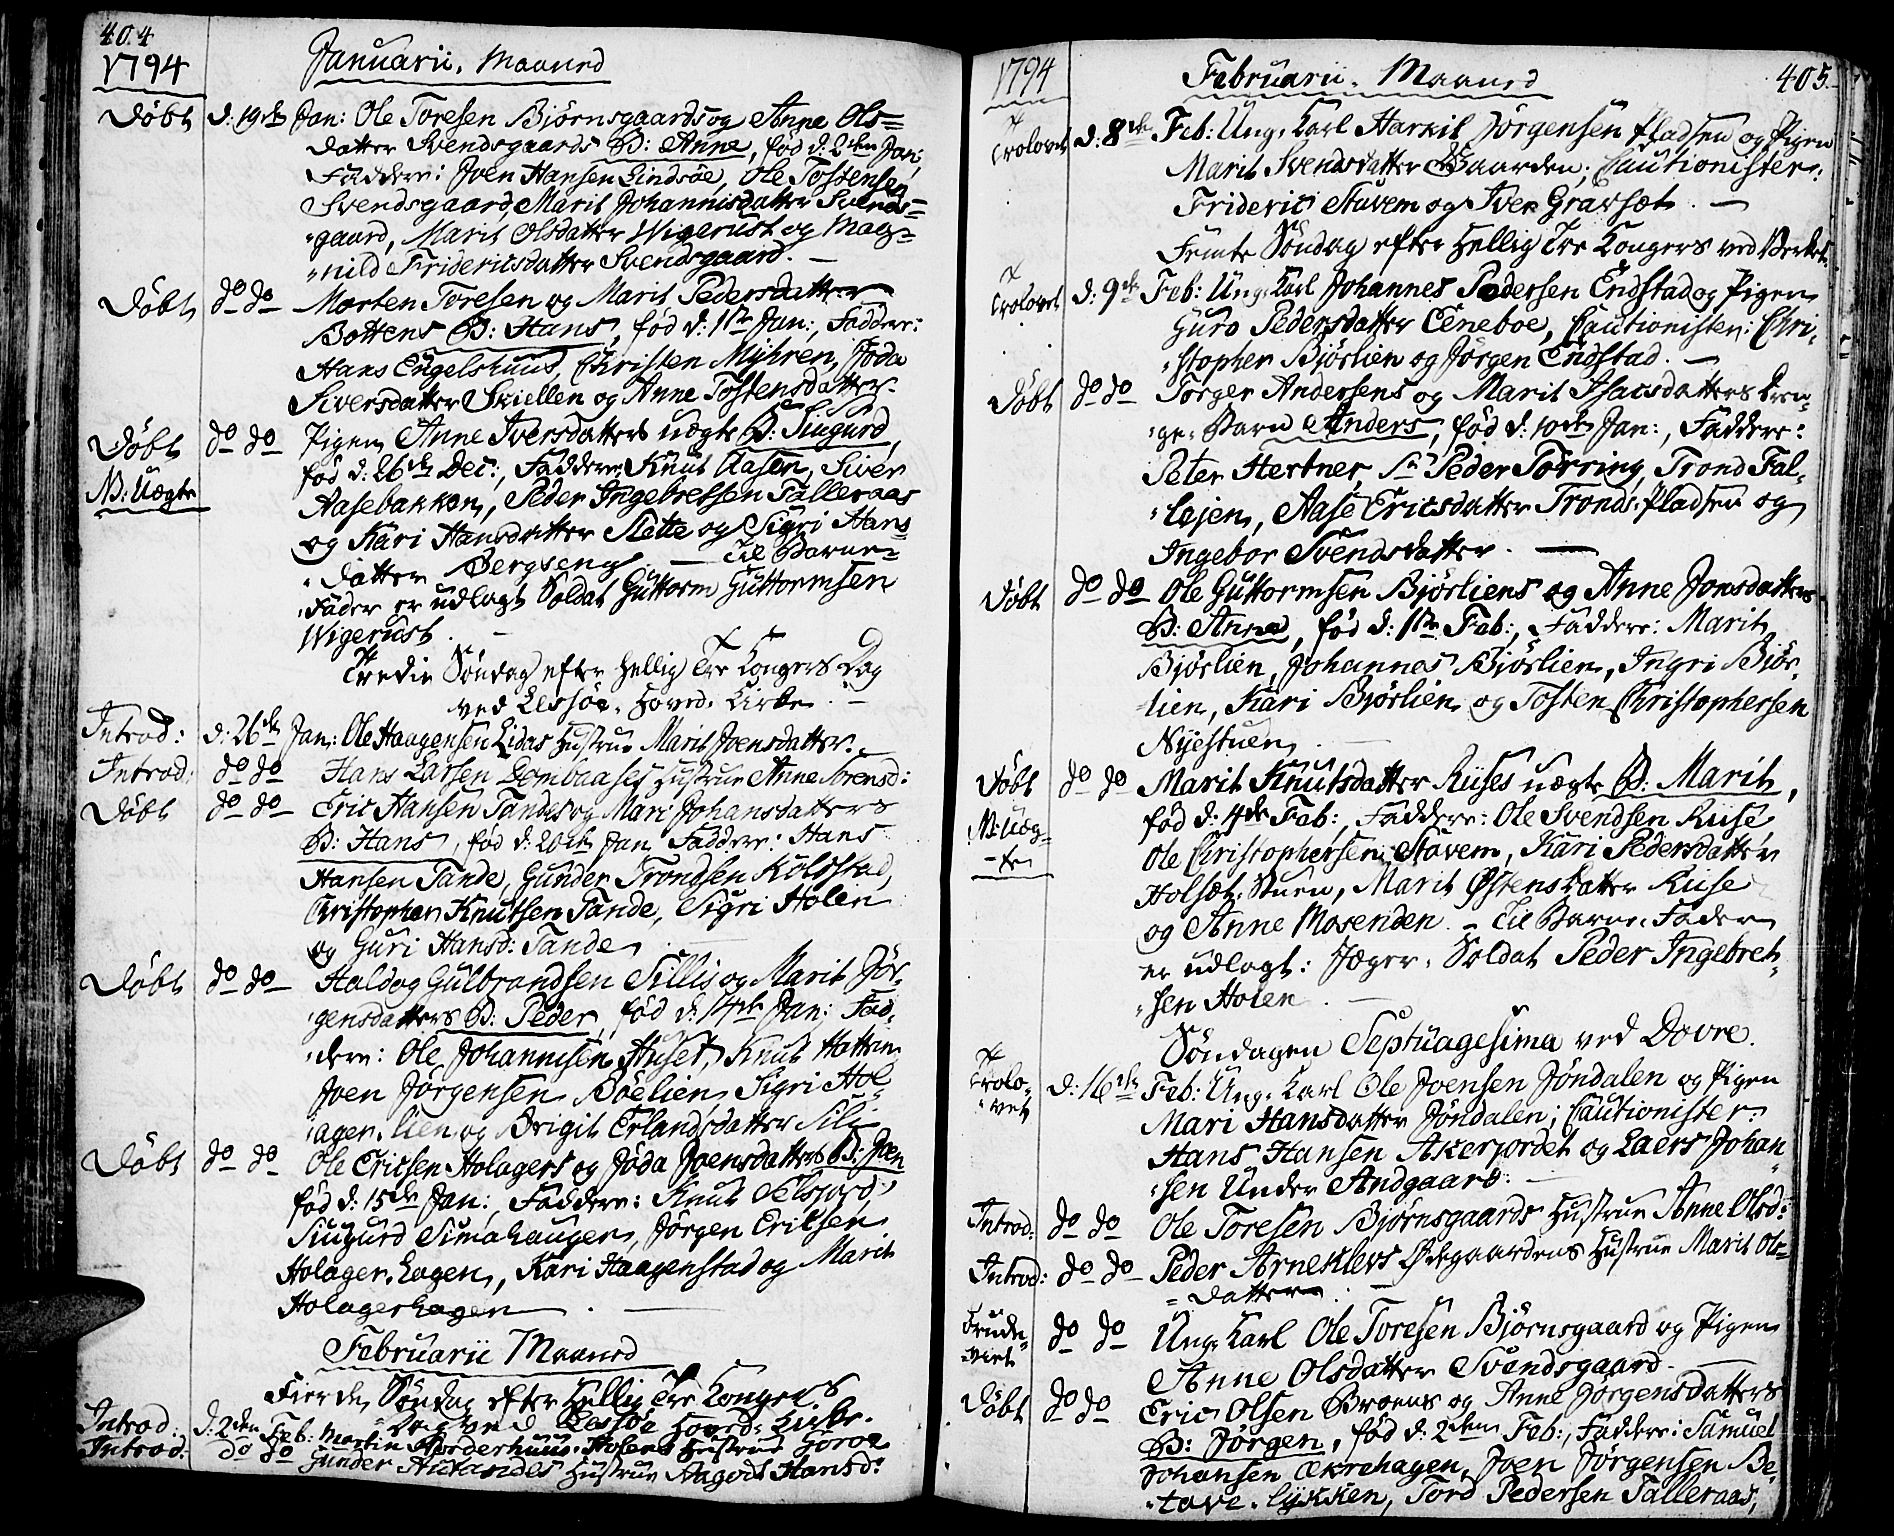 404
1794 Januarii. Maaned
Døbt d: 19de Jan: Ole Toresen Bjørnsgaards og Anne Ols=
datter Svendsgaards B: Anne, fød d. 2den Jan:,
Faddere: Joen Hansen Lindsøe, Ole Tostensen
Svendsgaard, Marit Johannisdatter Svends=
"gaard, Marit Olsdatter Wigerust og Mag=
"nild Fridericsdatter Svendsgaard. —
Døbt do do Morten Toresen og Marit Pedersdatter
Bottens B: Hans, fød d: 1te Jan:, Faddere:
Hans Engelshuus, Christen Myhren, Jøda
Siversdatter Skiellen og Anne Tostensdatter.
Døbt do do Pigen Anne Iversdatters uægte B: Siugurd,
N: Uægte fød d: 26de Dec:, Faddere: Knut Aasen, Siver
Aasebakken, Peder Ingebretsen Talleraas
og Kari Hansdatter Slette og Sigri Hans
"datter Bergseng. — Til Barne=
"Fader er udlagt Soldat Guttorm Guttormsen
Wigerust. —
Tredie Søndag efter Hellig Tre Kongers Dag
ved Lessøe. Hoved. Kirke. —
Introd: d: 26de Jan: Ole Haagensen Lidas Hustrue Marit Joensdatter. —
Introd: do do Hans Larsen Dombaases Hustrue Anne Torensd:
Døbt do do Eric Hansen Tandes og Mari Johansdatters
B: Hans, fød d: 20de Jan Faddere: Hans
Hansen Tande, Gunder Trondsen Kolstad,
Christopher Knutsen Tande, Sigri Holen
og Guri Hansd: Tande.
Døbt do do Haldog Gulbrandsen Sillis og Marit Jør-
"gensdatters B: Peder, fød d: 14de Jan: Fad-
"dere: Ole Johannisen Huset, Knut Hatten
Joen Jørgensen Bøelien, Sigri Hol
"ager. lien og Brigit Erlandsdatter Sili
Døbt do do Ole Ericsen Holagers og Jøda Joensdatters B: Joen
fød d: 15de Jan:, Faddere: Knut Selsjord,
Siugurd Simahaugen, Jørgen Ericsen
Holager. hagen, Kari Haagenstad og Marit
Holagerhagen. —
Februarii Maaned
Fierde Søndag efter Hellig Tre Kongers
Dag ved Lessøe Hoved. Kirke.
Introd: d: 2den Feb: Hustrue Goroe
Introd: do do Gunder Hustrue Aagodt Hansd:
1794 Februarii. Maaned 405.
Trolovet d: 8de Feb: Ung. Karl Harkil Jørgensen Pladsen og Pigen
Marit Svendsdatter Gaarden; Cautionister:
Frideric Stavem og Iver Gravset. —
Femte Søndag efter Hellig Tre Kongers ved Verket.
Trolovet d: 9de Feb: Ung. Karl Johannes Pedersen Endstad og Pigen
Guro Pedersdatter Ceneboe, Cautionister: Chri-
"stopher Bjørlien og Jørgen Endstad. —
Døbt do do Torger Andersens og Marit Isacsdatters Dren-
"ge. Barn Anders, fød d: 10de Jan:, Faddere:
Peter Hertner, Sr Peder Tørring, Trond Fal-
"lejen, Aase Ericsdatter Tronds. Pladsen og
Ingebor Svendsdatter. —
Døbt do do Ole Guttormsen Bjørliens og Anne Jonsdatters
B: Anne, fød d: 1te Feb:, Faddere: Marit
Bjørlien, Johannes Bjørlien, Ingri Bjør-
lien, Kari Bjørlien og Tosten Christophersen
Nyestuen. —
Døbt do do Marit Knutsdatter Ruses uægte B: Marit,
N: Uæg- fød d: 4de Feb:, Faddere: Ole Svendsen Ruse
-te Ole Christophersen Stavem, Kari Pedersdatter
Holset. Stuen, Marit Østensdatter Ruse
og Anne Mosenden. — Til Barne. Fader
er udlagt: Jæger. Soldat Peder Ingebret-
"sen Holen. —
Søndagen Septuagesima ved Dovre.
Trolo- d: 16de Feb: Ung. Karl Ole Joensen Jøndalen og Pigen
"vet Mari Hansdatter Jøndalen; Cautionister:
Hans Hansen Akerjordet og Laers Johan
"sen Under Andgaard: —
Introd: do do Ole Toresen Bjørnsgaards Hustrue Anne Olsd:
Introd: do do Peder Arneklevs Ødegaardens Hustrue Marit Ols=
=datter. —
Trude- do do Ung. Karl Ole Toresen Bjørnsgaard og Pigen
=viet Anne Olsdatter Svendsgaard. —
Døbt do do Eric Olsen Broens og Anne Jørgensdatters
B: Jørgen, fød d: 2den Feb:, Faddere: Samuel
Johansen Ækrehagen, Joen Jørgensen Be-
"tave. lykken, Tord Pedersen Talleraas,